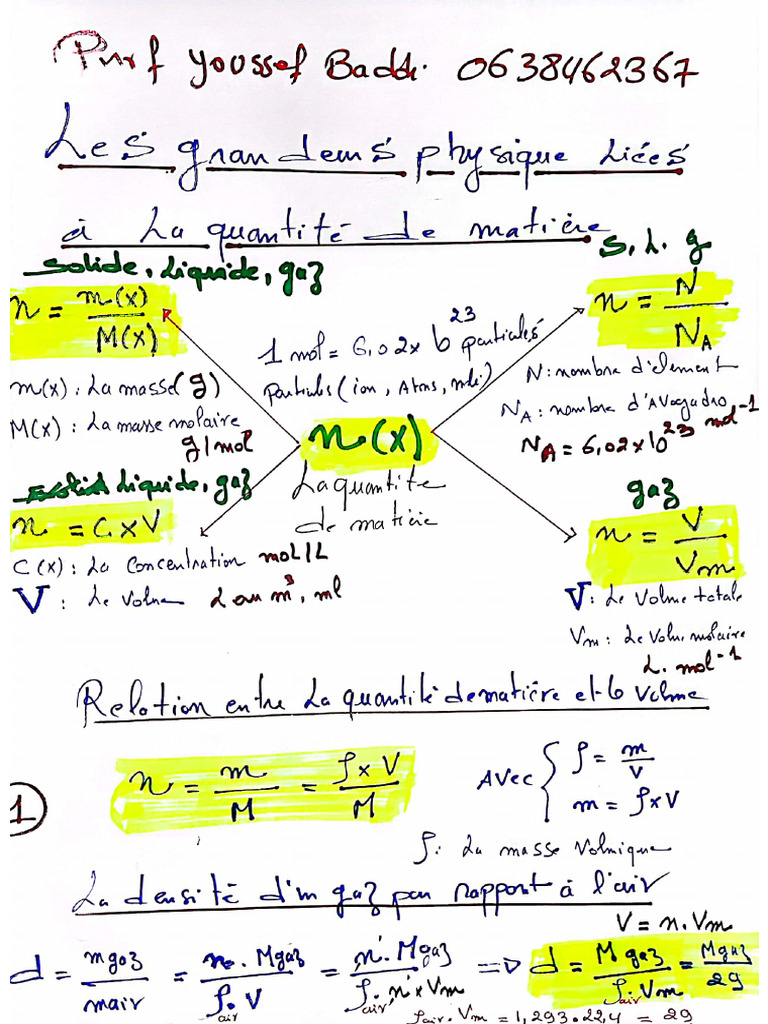 Prof Youssef Baddi. 0638462367
Les grandeurs physique Liées
à La quantité de matière
Solide, Liquide, gaz
n = m(x) / M(x)
m(x) : La masse (g)
M(x) : La masse molaire
g/mol
S. L. g
n = N / N_A
N : nombre d'element
N_A : nombre d'Avogadro
N_A = 6,02 x 10^23 mol^-1
1 mol = 6,02 x 10^23 particules
particules (ion, Atms, mlé)
n(x)
La quantite
de matière
Liquide, gaz
n = C x V
C(x) : La Concentration mol/L
V : Le Volme L ou m^3, ml
gaz
n = V / Vm
V : Le Volme totale
Vm : Le Volm molaire
L. mol^-1
Relation entre La quantité de matière et le volme
1
n = m / M = ρ x V / M
Avec { ρ = m / V
m = ρ x V
ρ : La masse Volmique
La densité d'un gaz par rapport à l'air
V = n. Vm
d = mgaz / mair = n. Mgaz / ρair. V = n. Mgaz / ρair. n x Vm => d = Mgaz / ρair. Vm = Mgaz / 29
ρair. Vm = 1,293 . 22,4 = 29